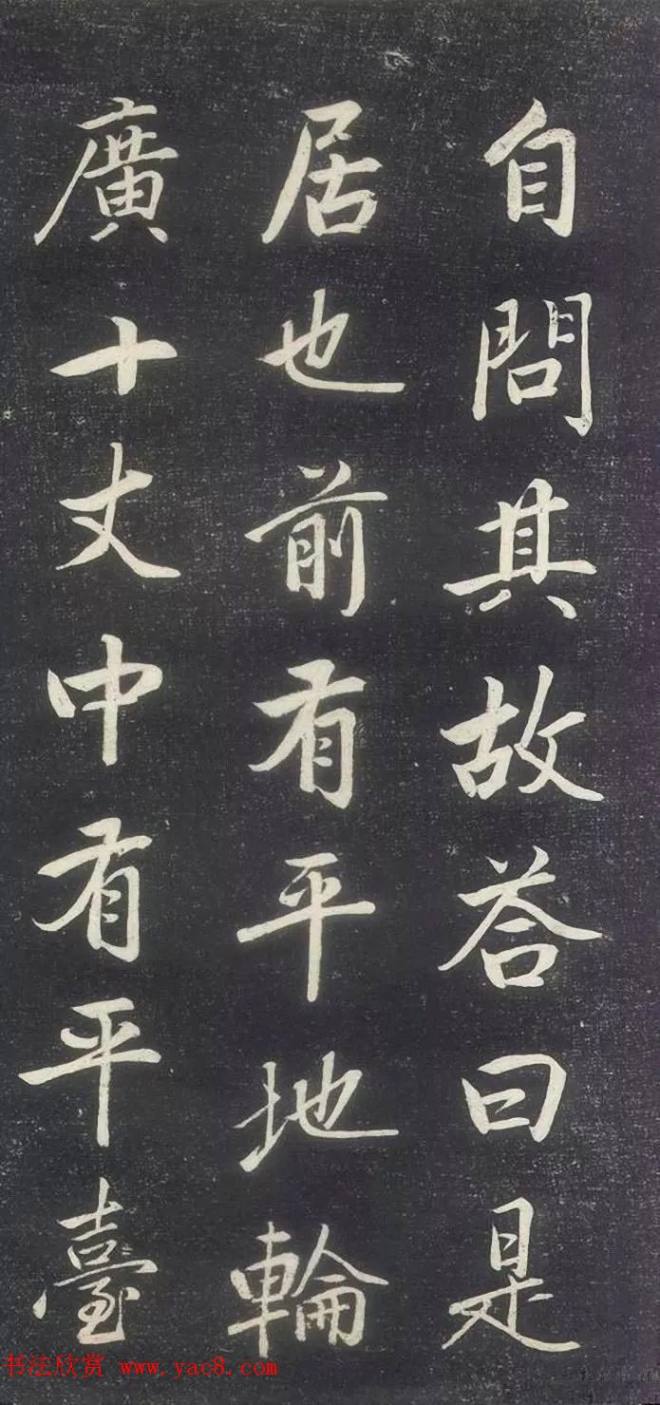 自問其故荅曰是
居也前有平地輪
廣十丈中有平臺
书法欣赏 www.yac8.com